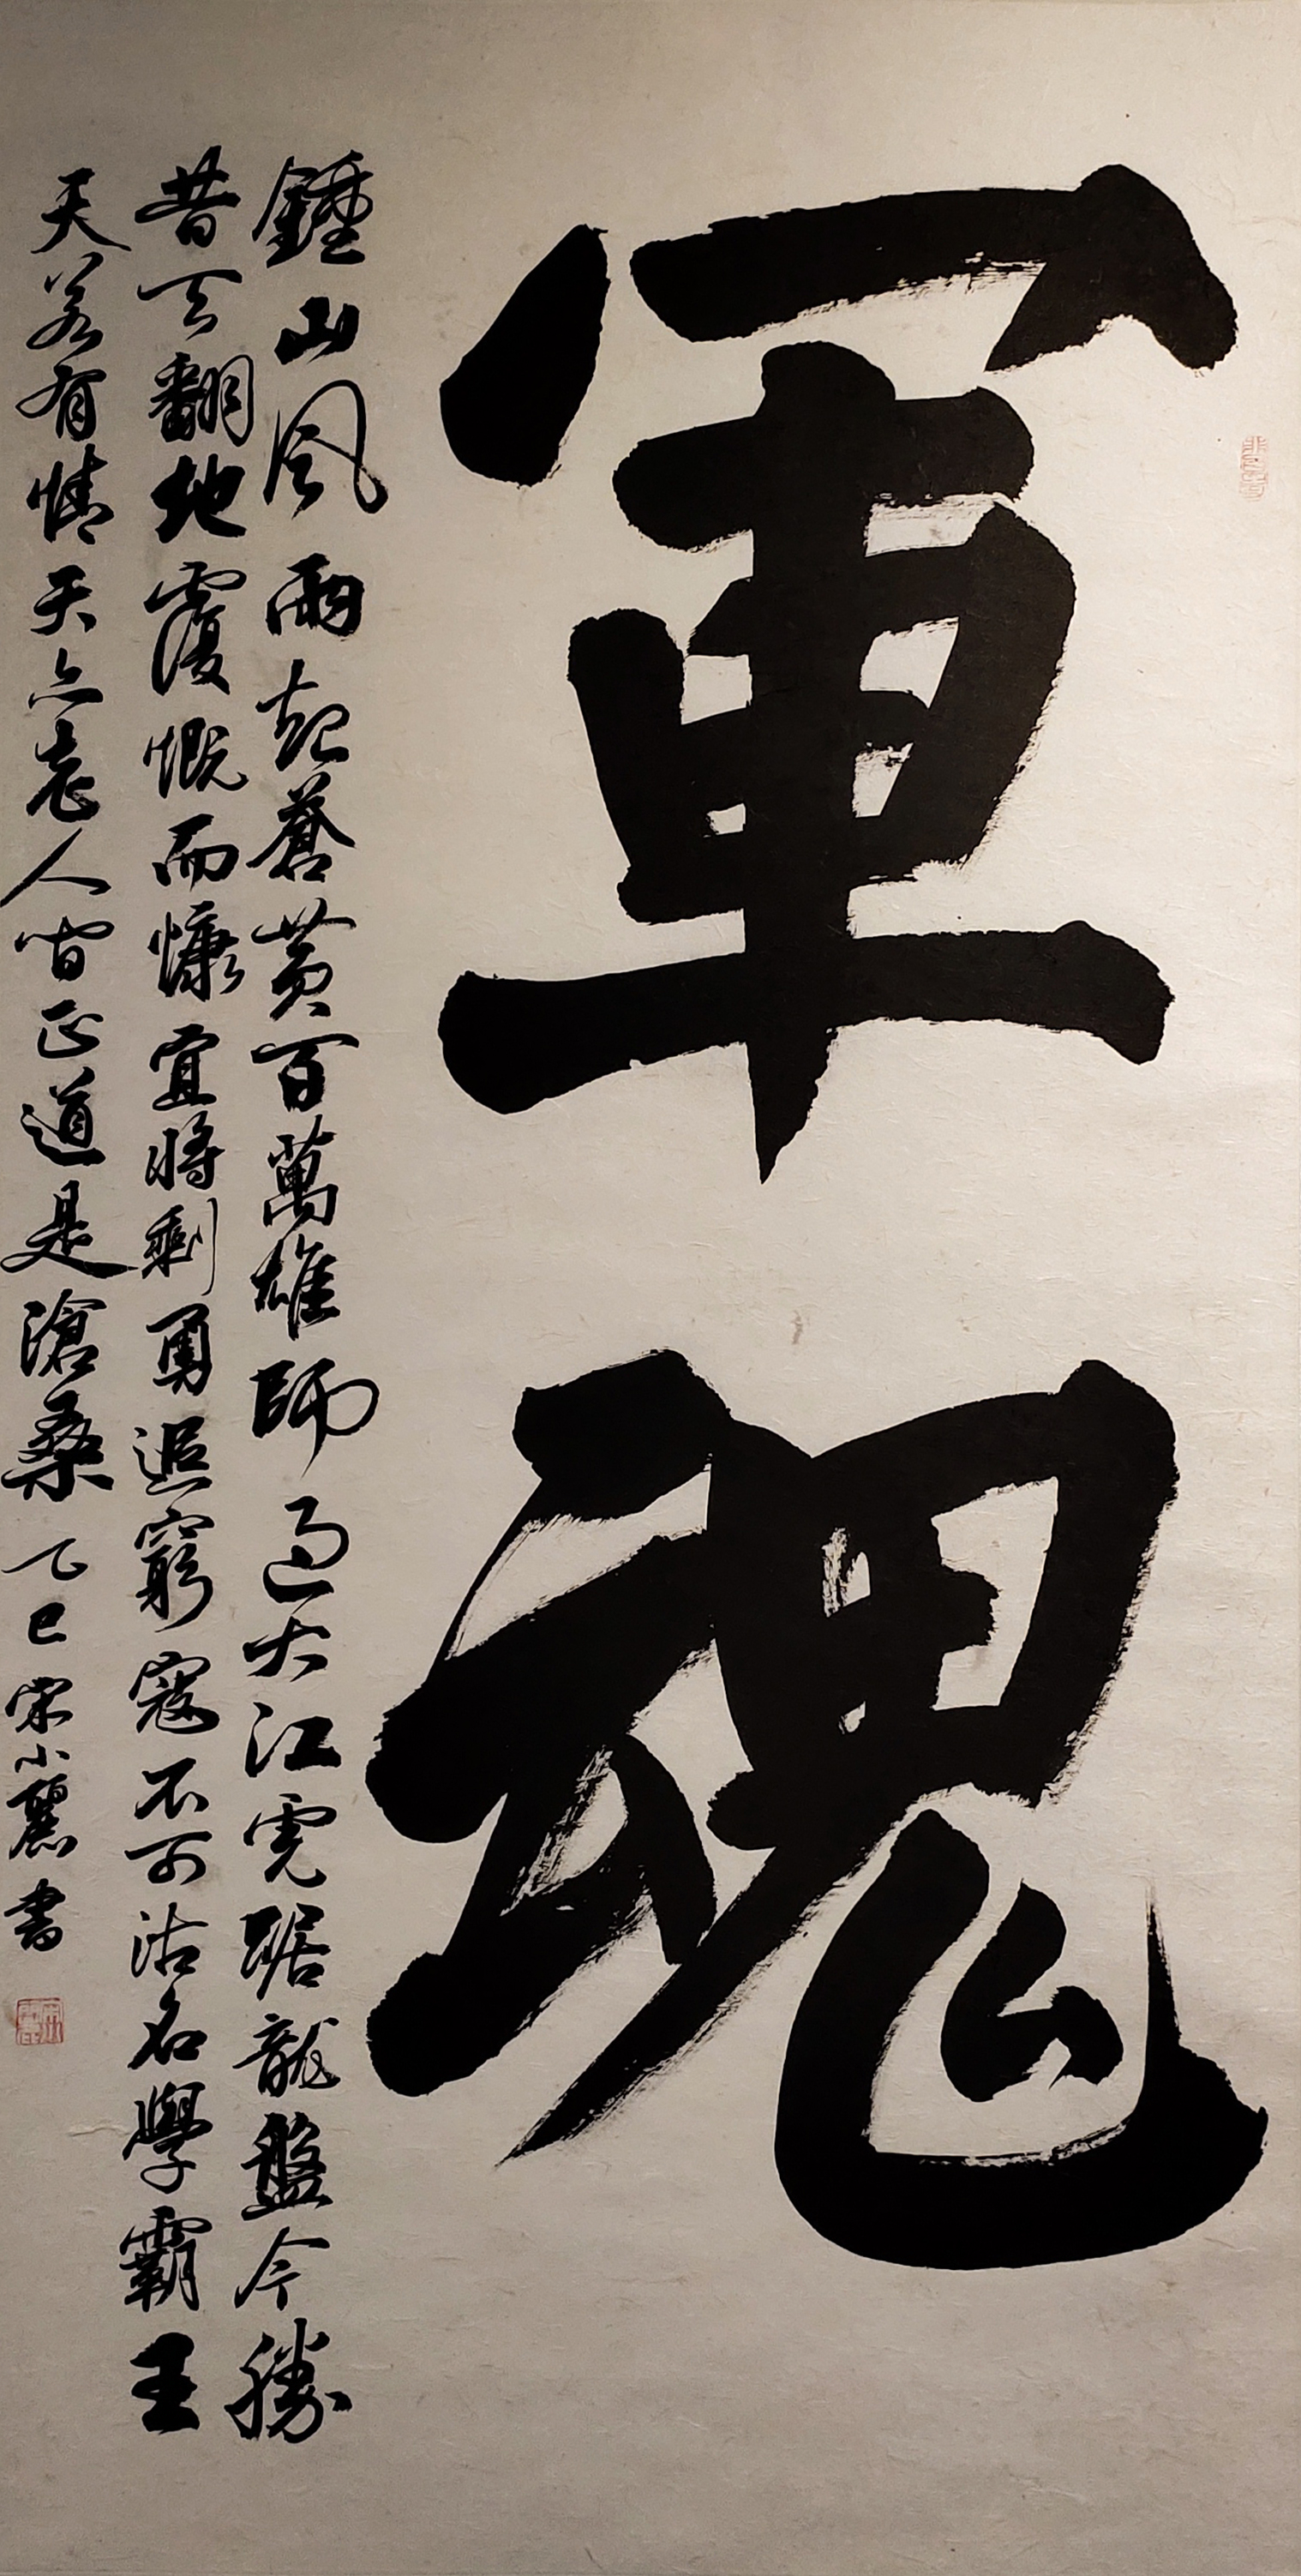 軍魂
鍾山風雨起蒼黃百萬雄師過大江虎踞龍盤今勝
昔天翻地覆慨而慷宜將剩勇追窮寇不可沽名學霸王
天若有情天亦老人間正道是滄桑 乙巳 宋小麗書